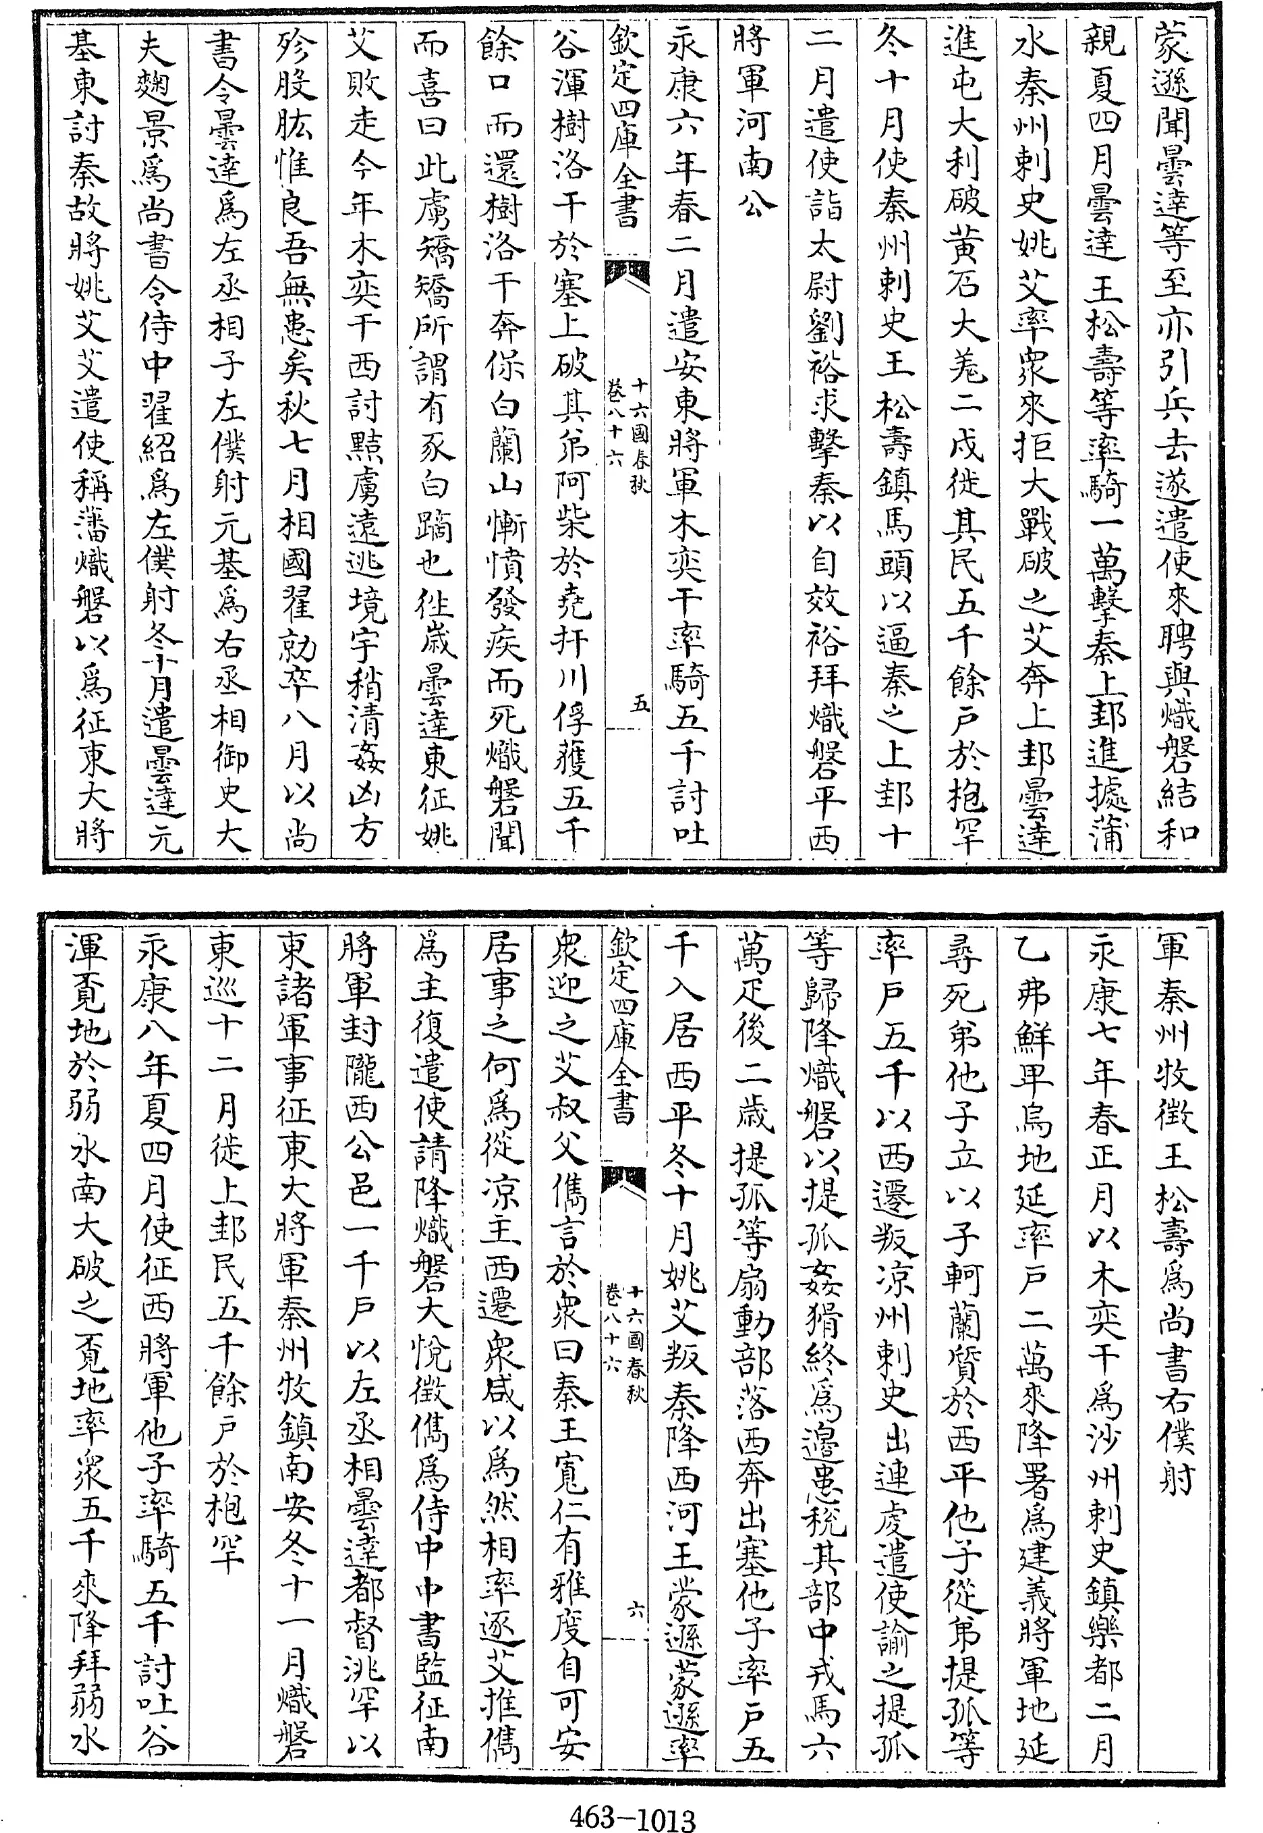 蒙遜聞曇達等至亦引兵去遂遣使來聘與熾磐結和
親夏四月曇達王松壽等率騎一萬擊秦上邽進據蒲
水秦州刺史姚艾率衆來拒大戰破之艾奔上邽曇達
進屯大利破黄石大羌二戍徙其民五千餘户於枹罕
冬十月使秦州刺史王松壽鎮馬頭以逼秦之上邽十
二月遣使詣太尉劉裕求擊秦以自效裕拜熾磐平西
將軍河南公
永康六年春二月遣安東將軍木奕干率騎五千討吐
欽定四庫全書
十六國春秋
卷八十六
五
谷渾樹洛干於塞上破其弟阿柴於堯扞川俘獲五千
餘口而還樹洛干奔保白蘭山慚憤發疾而死熾磐聞
而喜曰此虜矯矯所謂有豕白蹢也徃歳曇達東征姚
艾敗走今年木奕干西討黠虜遠逃境宇稍清姦凶方
殄股肱惟良吾無患矣秋七月相國翟勍卒八月以尚
書令曇達爲左丞相子左僕射元基爲右丞相御史大
夫麹景爲尚書令侍中翟紹爲左僕射冬十月遣曇達元
基東討秦故將姚艾艾遣使稱藩熾磐以爲征東大將
軍秦州牧徵王松壽爲尚書右僕射
永康七年春正月以木奕干爲沙州刺史鎮樂都二月
乙弗鮮卑烏地延率户二萬來降署爲建義將軍地延
尋死弟他子立以子軻蘭質於西平他子從弟提孤等
率户五千以西遷叛凉州刺史出連虔遣使諭之提孤
等歸降熾磐以提孤姦猾終爲邊患税其部中戎馬六
萬疋後二歳提孤等扇動部落西奔出塞他子率户五
千入居西平冬十月姚艾叛秦降西河王蒙遜蒙遜率
欽定四庫全書
十六國春秋
卷八十六
六
衆迎之艾叔父儁言於衆曰秦王寬仁有雅度自可安
居事之何爲從凉主西遷衆咸以爲然相率逐艾推儁
爲主復遣使請降熾磐大悦徵儁爲侍中中書監征南
將軍封隴西公邑一千户以左丞相曇達都督洮罕以
東諸軍事征東大將軍秦州牧鎮南安冬十一月熾磐
東巡十二月徙上邽民五千餘户於枹罕
永康八年夏四月使征西將軍他子率騎五千討吐谷
渾覓地於弱水南大破之覓地率衆五千來降拜弱水
463-1013